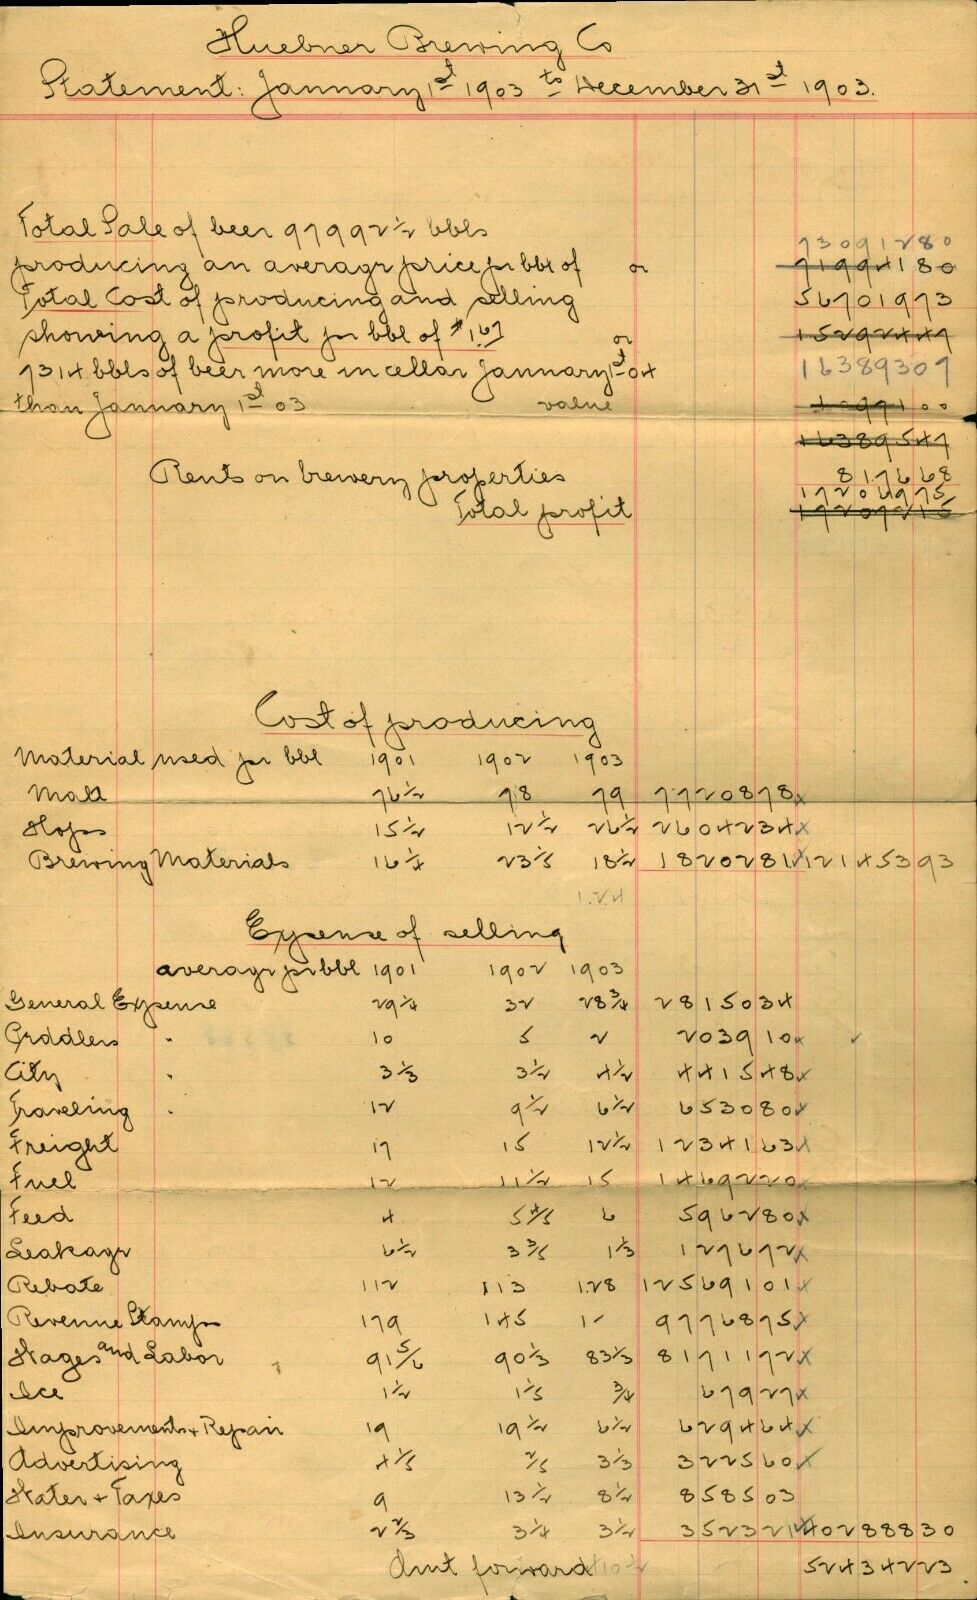 Huebner Brewing Co
Statement: January 1st 1903 to December 31st 1903.
Total Sale of beer 97992½ bbls 73091280
producing an average price pr bbl of or 71994180
Total Cost of producing and selling 56701973
showing a profit pr bbl of $1.67 or 15292447
7314 bbls of beer more in cellar January 1st 04 16389307
than January 1st 03 value 1099100
16389547
Rents on brewery properties 817668
17206975
Total profit 17207215
Cost of producing
Material used pr bbl 1901 1902 1903
Malt 76½ 78 79 7720878x
Hops 15½ 12½ 26½ 2604234x
Brewing Materials 16¼ 23⅕ 18½ 1820281x 12145393
1.24
Expense of selling
average pr bbl 1901 1902 1903
General Expense 29¼ 32 28¾ 2815034
Peddlers " 10 5 2 203910x ✓
City " 3⅓ 3½ 4½ 441548x
Traveling " 12 9½ 6½ 653080x
Freight 17 15 12½ 1234163x
Fuel 12 11½ 15 1469220x
Feed 4 5⅘ 6 596280x
Leakage 6½ 3⅗ 1⅓ 127672x
Rebate 112 113 1.28 12569101x
Revenue Stamps 179 145 1- 9776875x
Wages and Labor 91⅚ 90⅓ 83⅓ 8171172x
Ice 1½ 1⅕ ¾ 67927x
Improvements + Repair 19 19½ 6½ 629464x
Advertising 4⅕ ⅖ 3⅓ 322560x
Water + Taxes 9 13½ 8½ 858503
Insurance 2⅔ 3¼ 3½ 352321x 40288830
Amt forward 52434223